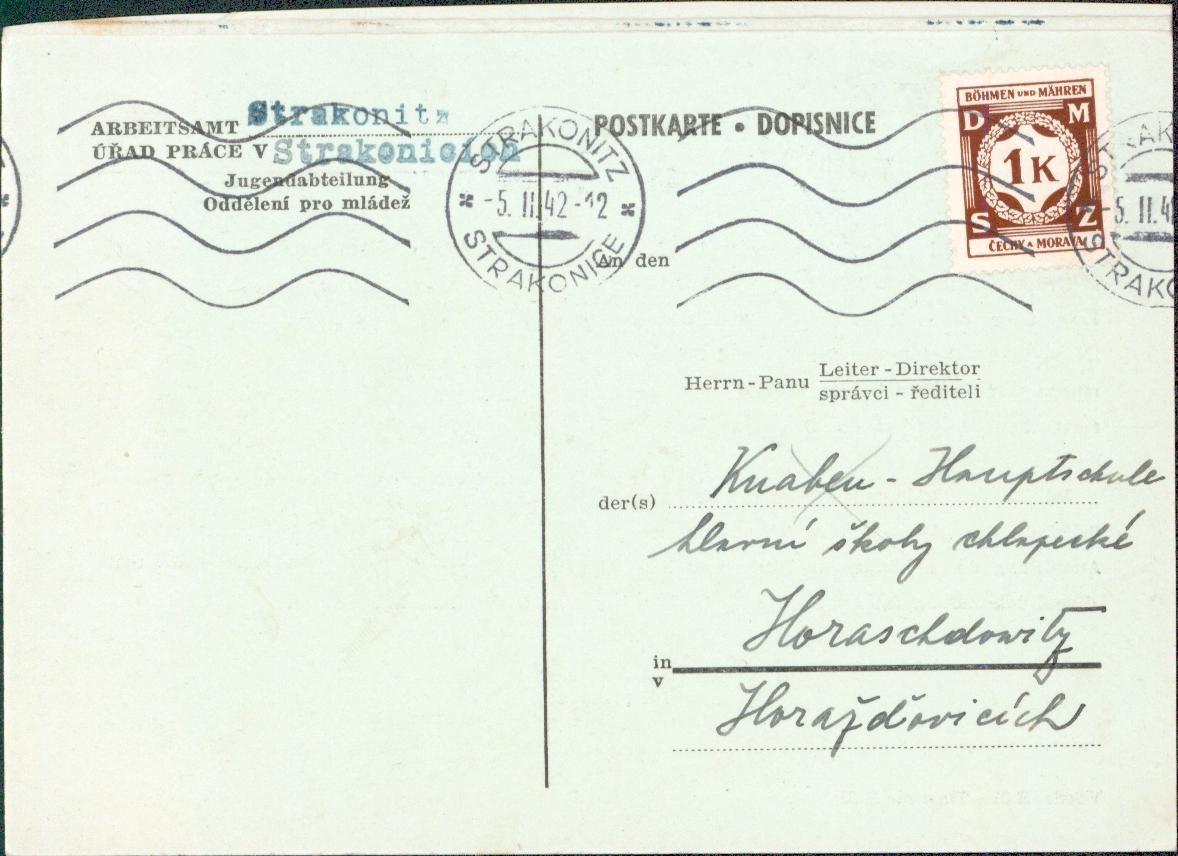 ARBEITSAMT Strakonitz
ÚŘAD PRÁCE V Strakonicích
Jugendabteilung
Oddělení pro mládež
STRAKONITZ
-5. II. 42 -12
STRAKONICE
POSTKARTE • DOPISNICE
BÖHMEN UND MÄHREN
D M
1 K
S Z
ČECHY A MORAVA
STRAKO
-5. II. 42
An den
Herrn-Panu Leiter - Direktor
správci - řediteli
der(s) Knaben - Hauptschule
hlavní školy chlapecké
in Horaschdowitz
v Horažďovicích